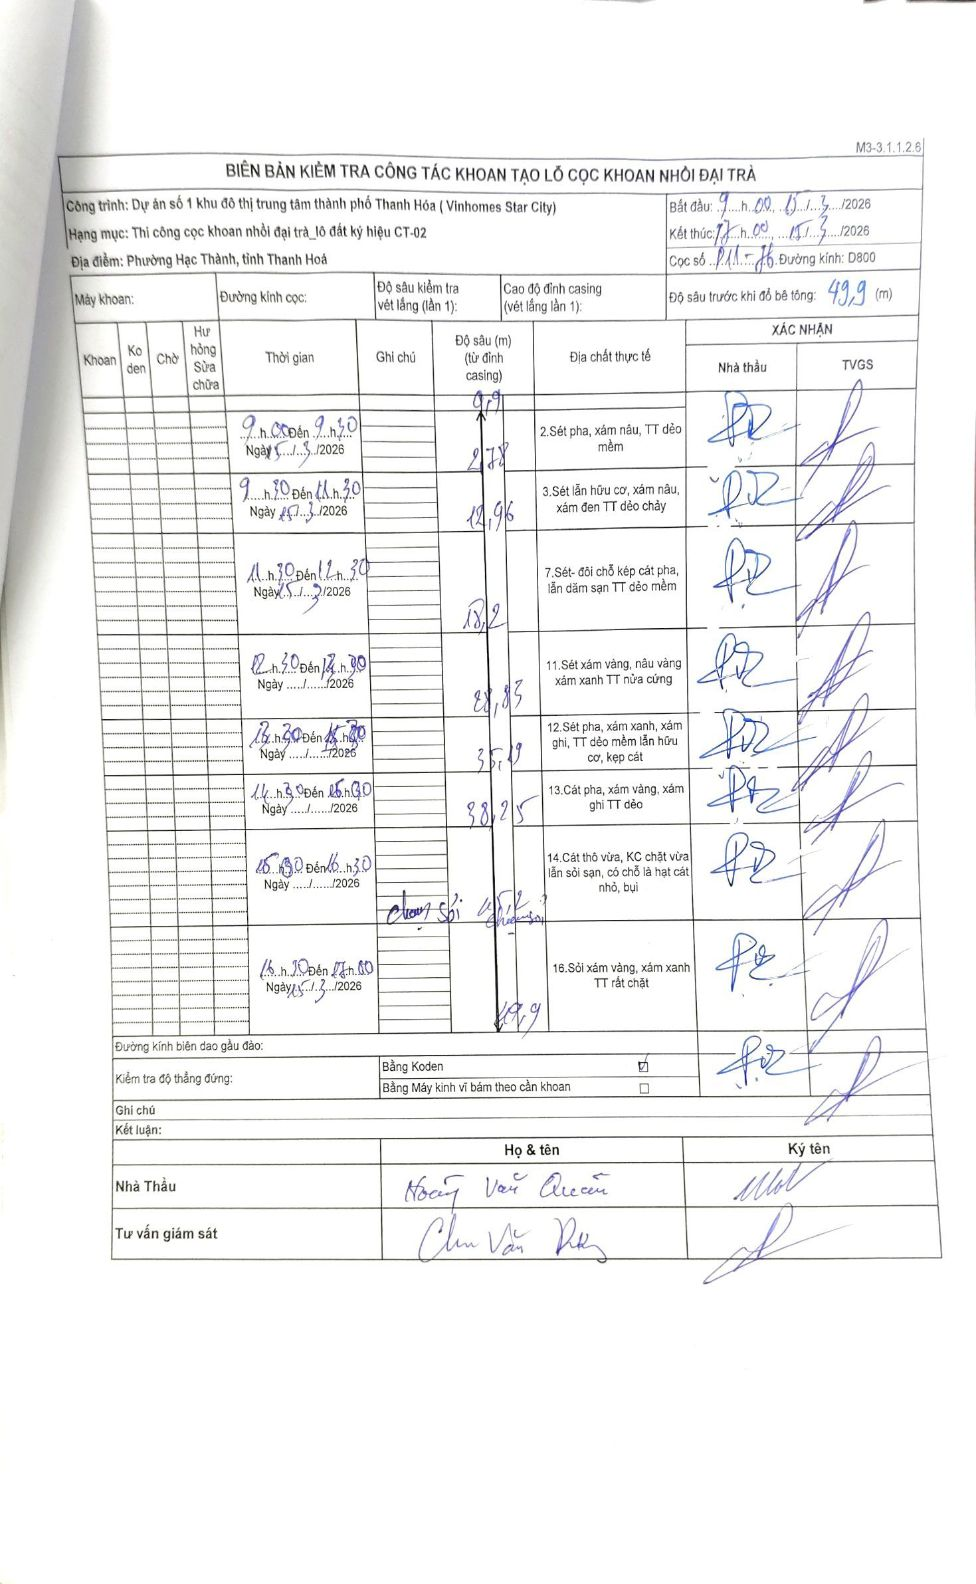 M3-3.1.1.2.6
BIÊN BẢN KIỂM TRA CÔNG TÁC KHOAN TẠO LỖ CỌC KHOAN NHỒI ĐẠI TRÀ
Công trình: Dự án số 1 khu đô thị trung tâm thành phố Thanh Hóa ( Vinhomes Star City)
Bắt đầu: 9 h 00, 15/3/2026
Hạng mục: Thi công cọc khoan nhồi đại trà_lô đất ký hiệu CT-02
Kết thúc: 17 h 00, 15/3/2026
Địa điểm: Phường Hạc Thành, tỉnh Thanh Hoá
Cọc số P11-76 Đường kính: D800
Máy khoan:
Đường kính cọc:
Độ sâu kiểm tra vét lắng (lần 1):
Cao độ đỉnh casing (vét lắng lần 1):
Độ sâu trước khi đổ bê tông: 49,9 (m)
Khoan
Ko den
Chờ
Hư hỏng Sửa chữa
Thời gian
Ghi chú
Độ sâu (m) (từ đỉnh casing)
Địa chất thực tế
XÁC NHẬN
Nhà thầu
TVGS
9 h 00 Đến 9 h 30
Ngày 15/3/2026
2,78
2.Sét pha, xám nâu, TT dẻo mềm
9 h 30 Đến 11 h 30
Ngày 15/3/2026
12,96
3.Sét lẫn hữu cơ, xám nâu, xám đen TT dẻo chảy
11 h 30 Đến 12 h 30
Ngày 15/3/2026
18,2
7.Sét- đôi chỗ kép cát pha, lẫn dăm sạn TT dẻo mềm
12 h 30 Đến 13 h 30
Ngày ...../....../2026
28,83
11.Sét xám vàng, nâu vàng xám xanh TT nửa cứng
13 h 30 Đến
Ngày ...../....../2026
35,19
12.Sét pha, xám xanh, xám ghi, TT dẻo mềm lẫn hữu cơ, kẹp cát
14 h 30 Đến 15 h 30
Ngày ...../....../2026
38,25
13.Cát pha, xám vàng, xám ghi TT dẻo
15 h 30 Đến 16 h 30
Ngày ...../....../2026
chạm sỏi 45,2
chạm sỏi
14.Cát thô vừa, KC chặt vừa lẫn sỏi sạn, có chỗ là hạt cát nhỏ, bụi
16 h 30 Đến 17 h 00
Ngày 15/3/2026
49,9
16.Sỏi xám vàng, xám xanh TT rất chặt
Đường kính biên dao gầu đào:
Kiểm tra độ thẳng đứng:
Bằng Koden ☑
Bằng Máy kinh vĩ bám theo cần khoan ☐
Ghi chú
Kết luận:
Họ & tên
Ký tên
Nhà Thầu
Hoàng Văn Quân
Tư vấn giám sát
Chu Văn